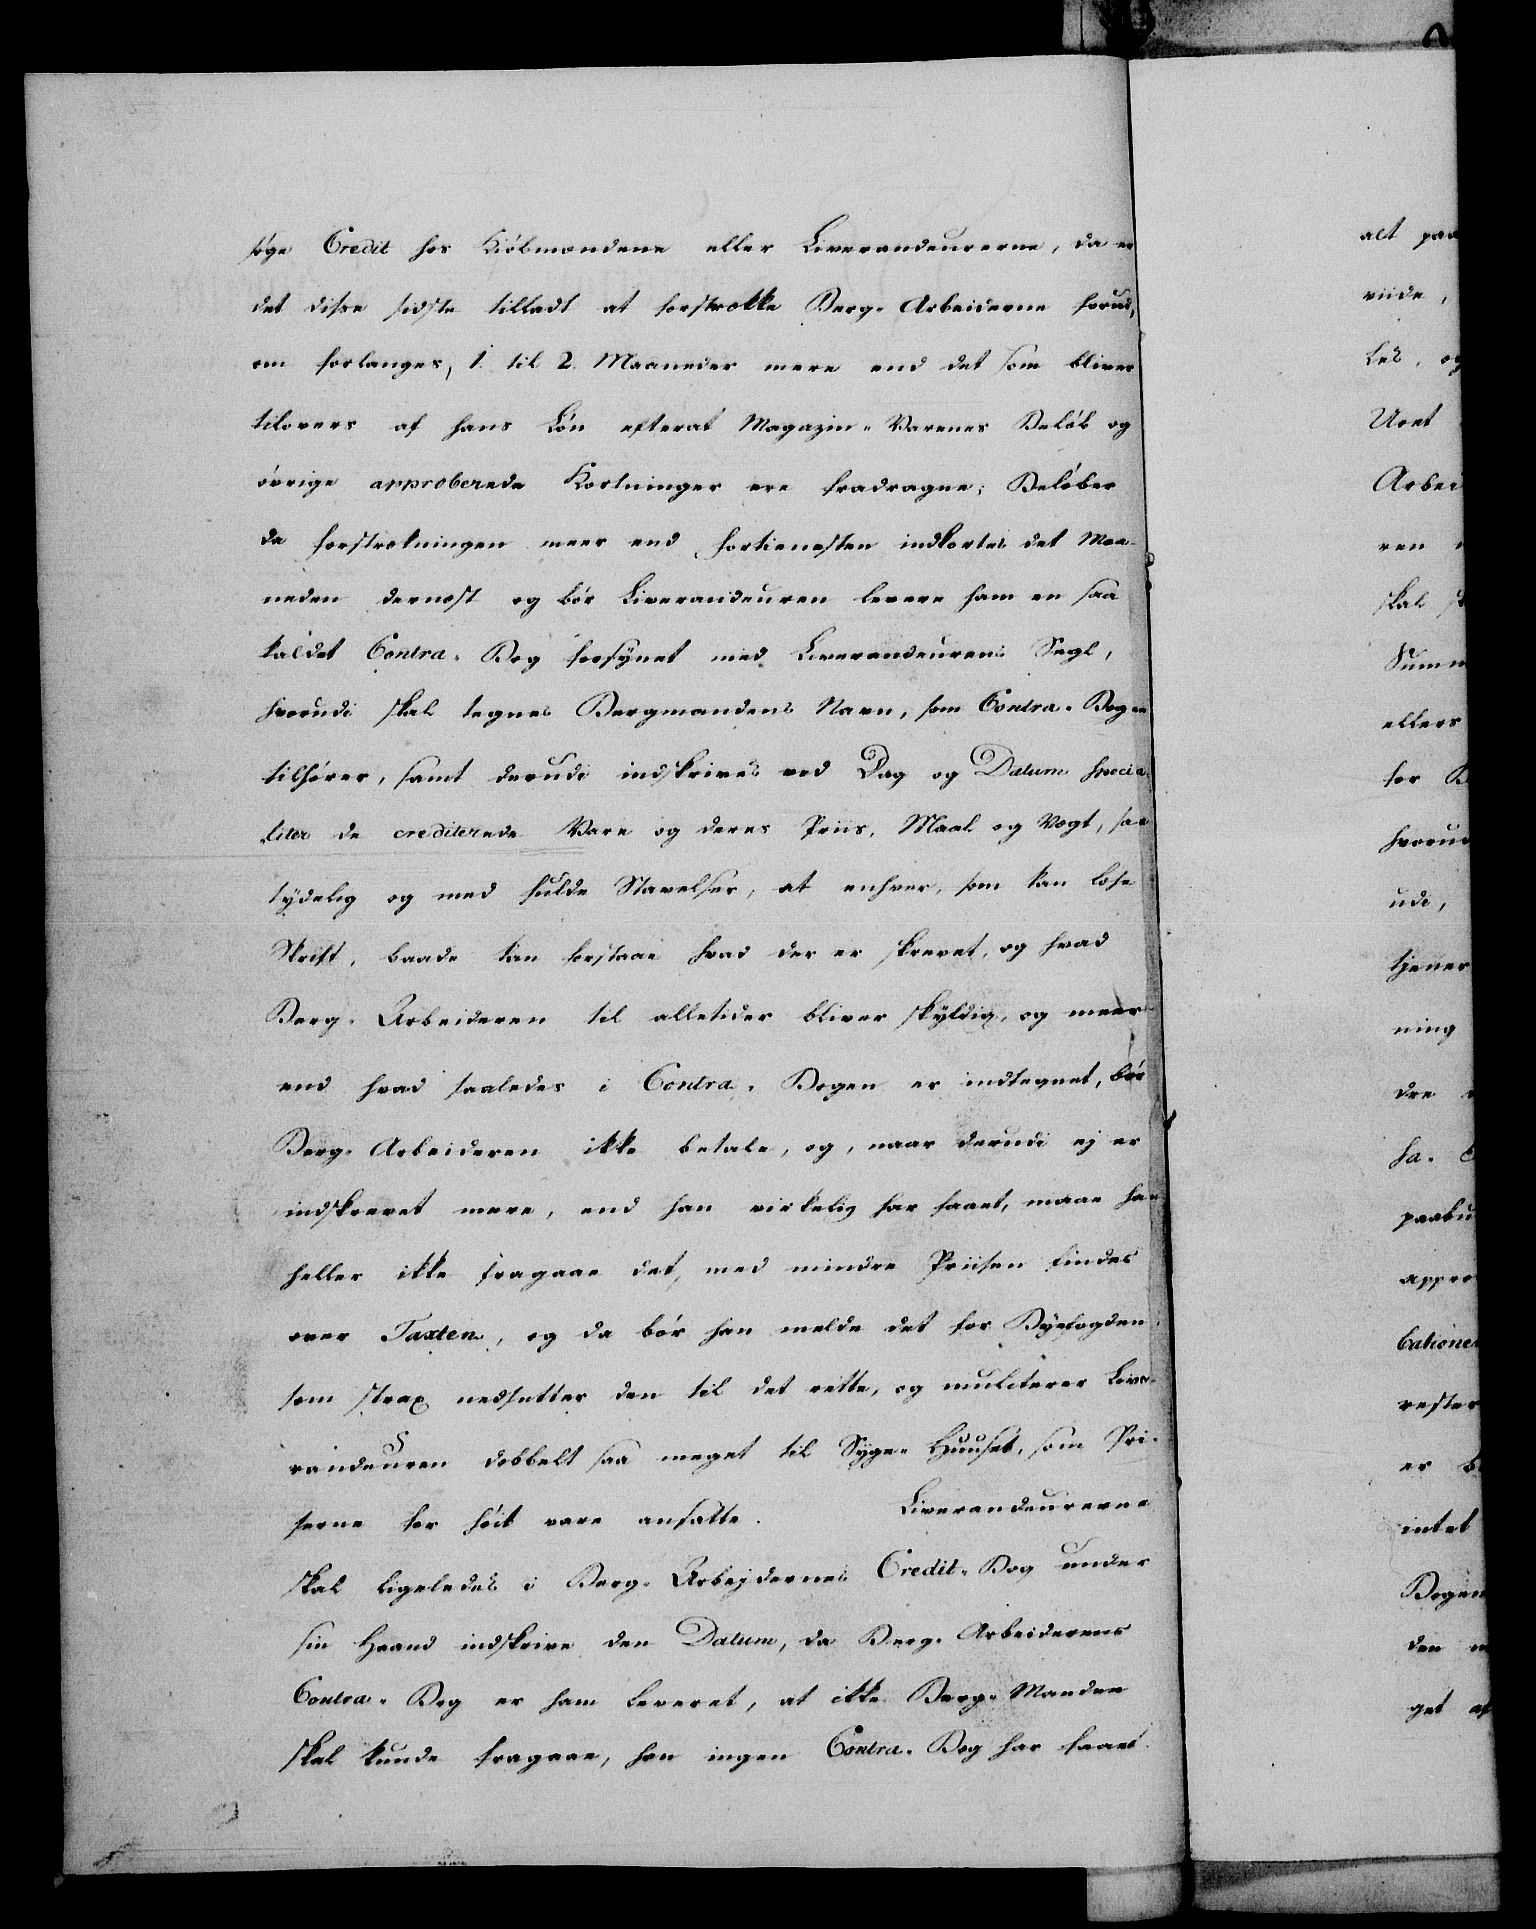 søge Credit hos Kiøbmændene eller Liverandeurerne, da er
det disse sidste tilladt at forstrække Berg-Arbeiderne forud,
om forlanges, 1. til 2. Maaneder mere end det som bliver
tilovers af hans Løn efterat Magazin-Varenes Beløb og
øvrige approberede Kortninger ere fradragne; Beløber
da forstrækningen meer end fortienesten indkortes det Maa-
neden dernæst og bør Liverandeuren levere ham en saa
kaldet Contra-Bog forsynet med Liverandeurens Segl,
hvorudi skal tegnes Bergmandens Navn, som Contra-Bogen
tilhører, samt derudi indskrives ved Dag og Datum specia-
liter de crediterede Vare og deres Priis, Maal og Vægt, saa
tydelig og med fulde Stavelser, at enhver, som kan læse
Skrift, baade kan forstaae hvad der er skrevet, og hvad
Berg-Arbeideren til alletider bliver skyldig, og meer
end hvad saaledes i Contra-Bogen er indtegnet, bør
Berg-Arbeideren ikke betale, og, naar derudi ej er
indskrevet mere, end han virkelig har faaet, maae han
heller ikke fragaae det, med mindre Priisen findes
over Taxten, og da bør han melde det for Byefogden
som strax nedsætter den til det rette, og mulcterer Live-
randeuren dobbelt saa meget til Syge-Huuset, som Pri-
serne for høit vare ansatte. Liverandeurerne
skal ligeledes i Berg-Arbejdernes Credit-Bog under
sin Haand indskrive den Datum, da Berg-Arbeiderens
Contra-Bog er ham leveret, at ikke Berg-Manden
skal kunde fragaae, han ingen Contra-Bog har faaet.
alt paa
viide,
les, og
Uret
Arbei
ren
skal
Summ
ellers
for
hvorud
udi,
tjener
ning
dre
ha
paabu
appro
cationer
rester
er
intet
Bogen
den
get af